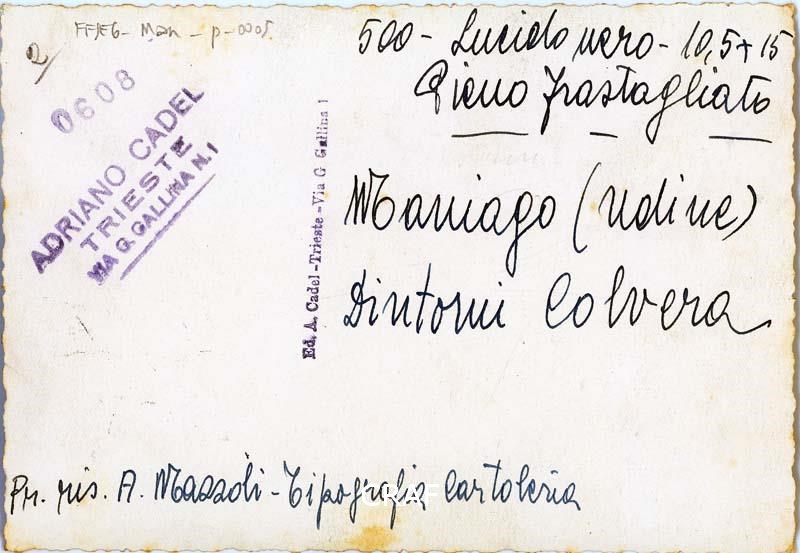 2/
FFIEG - Man - p - 0005
0608
ADRIANO CADEL
TRIESTE
VIA G. GALLINA N. 1
Ed. A. Cadel - Trieste - Via G. Gallina 1
500 - Lucido nero - 10,5 + 15
Pieno frastagliato
Maniago (Udine)
Dintorni Colvera
Pr. ris. A. Massoli - Tipografia Cartoleria
CRAF